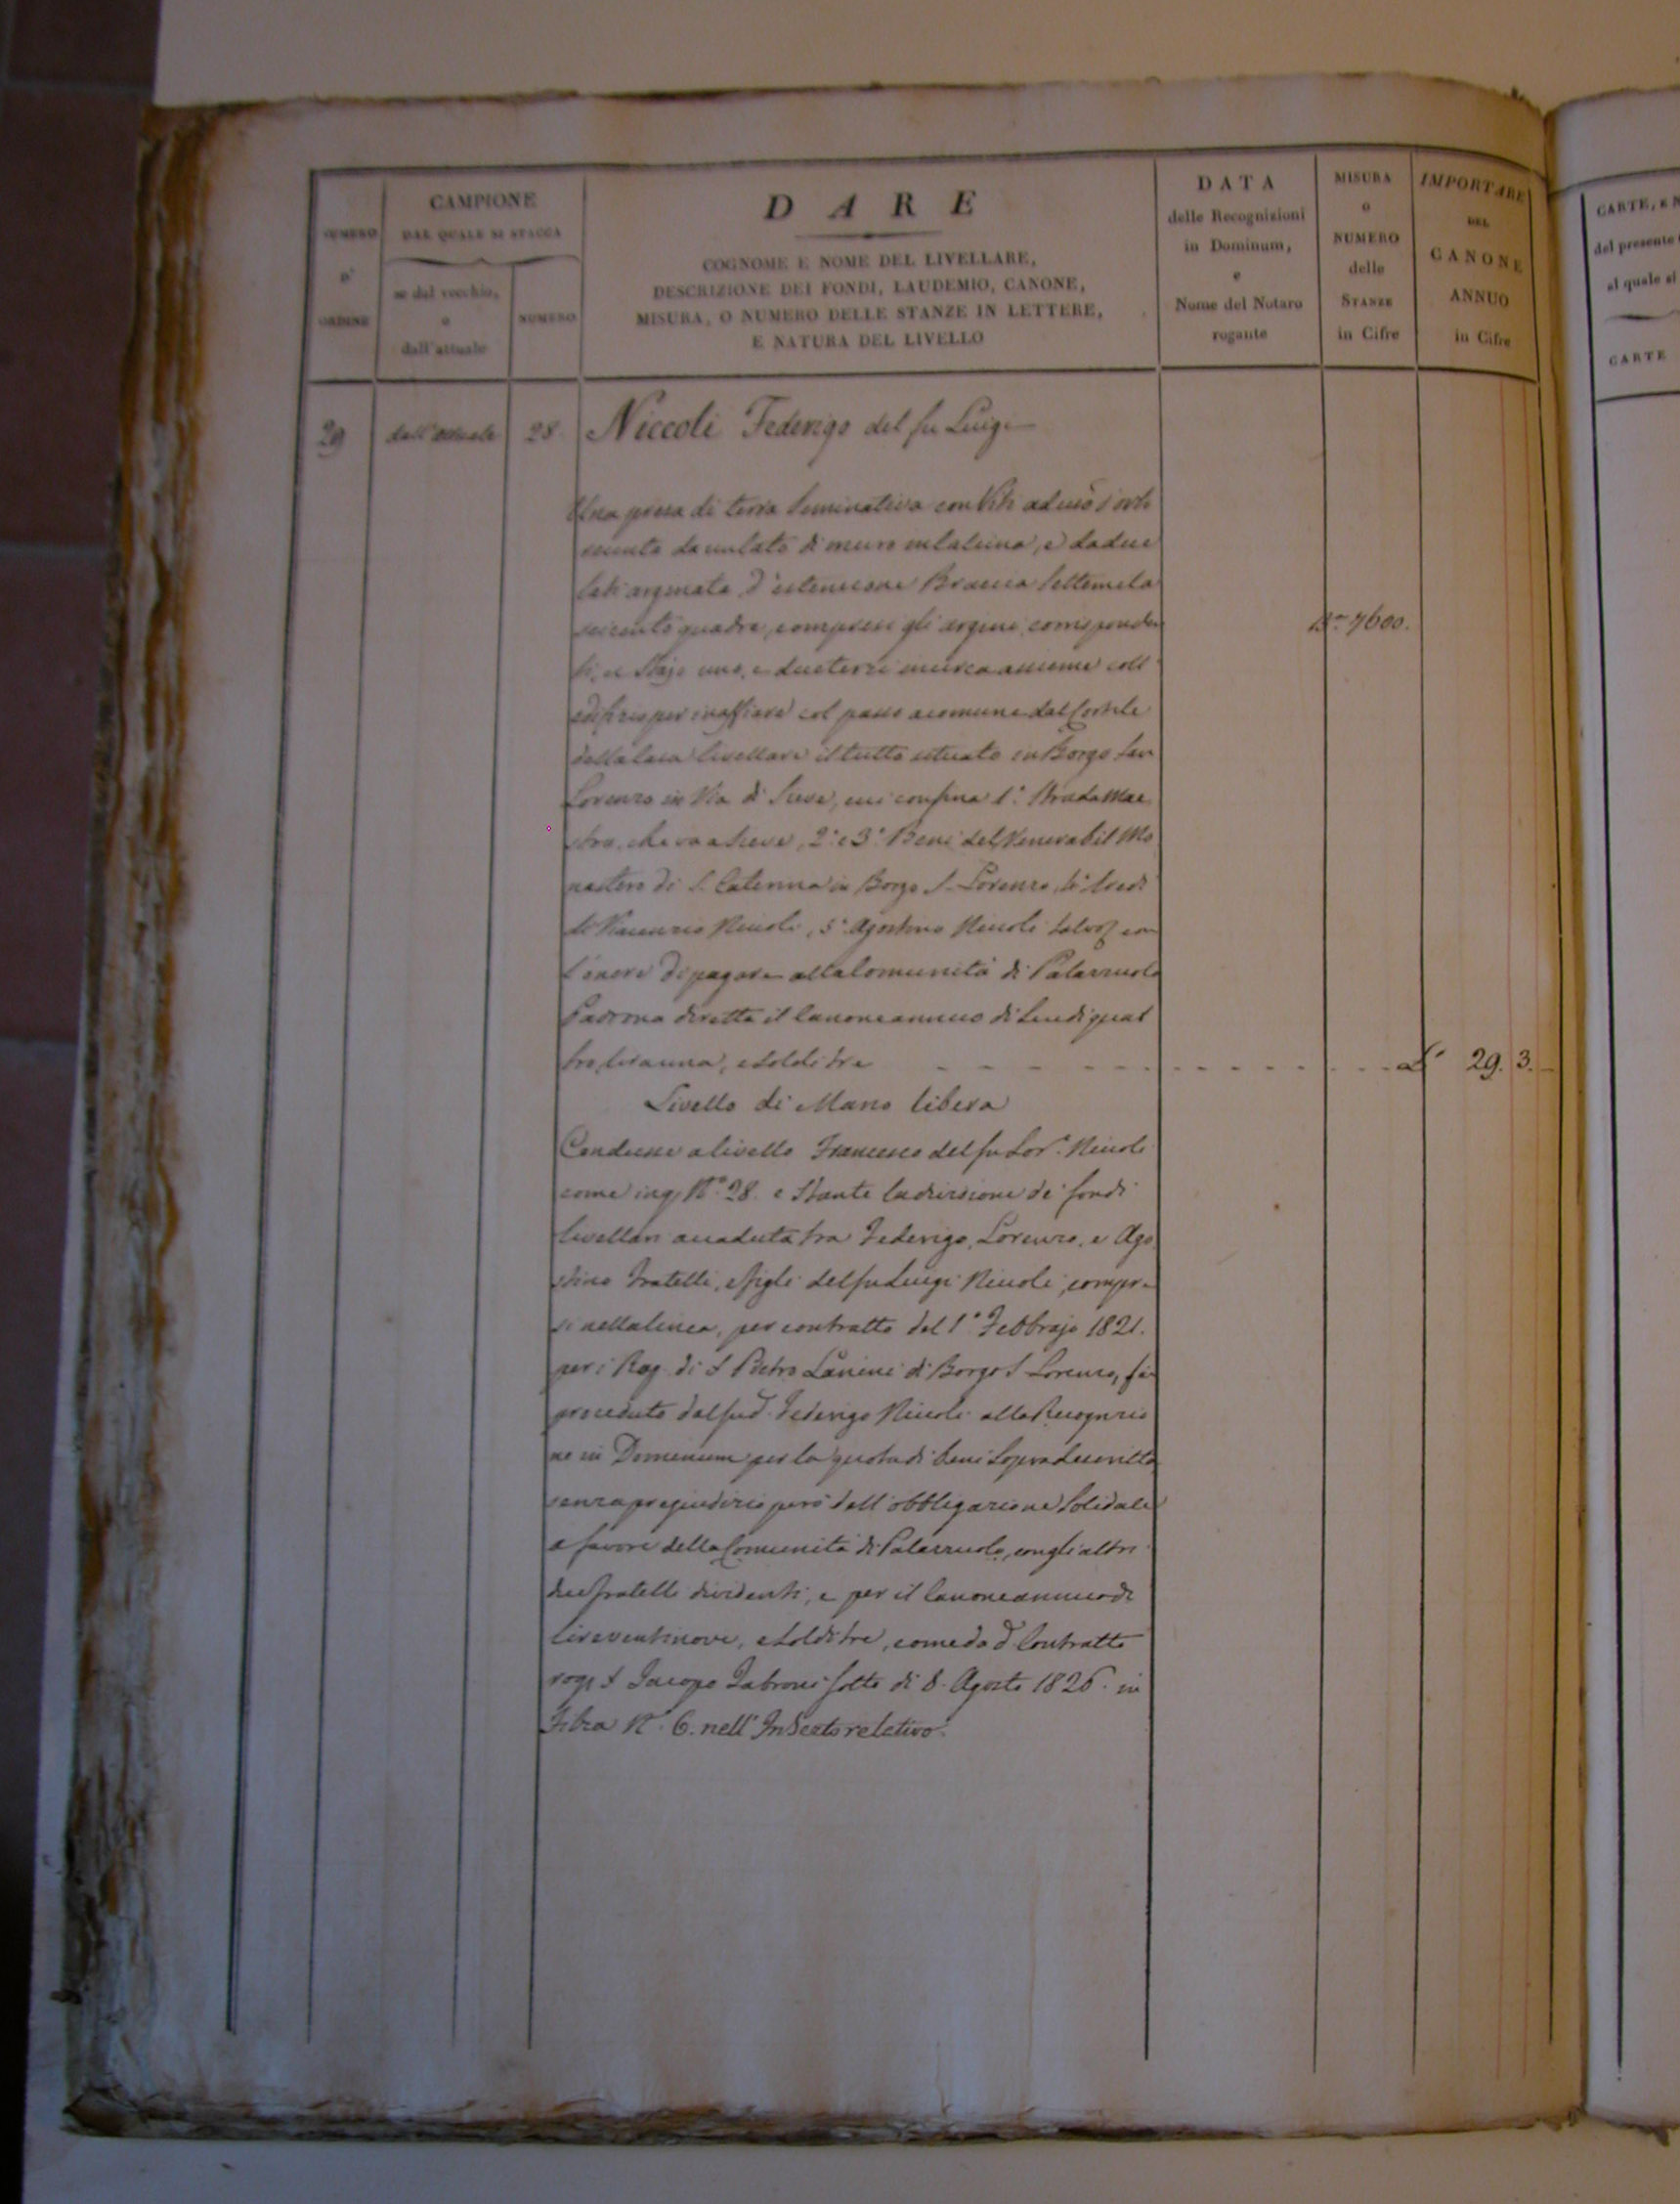 NUMERO
D'
ORDINE
CAMPIONE
DAL QUALE SI STACCA
se dal vecchio,
o
dall'attuale
NUMERO
D A R E
COGNOME E NOME DEL LIVELLARE,
DESCRIZIONE DEI FONDI, LAUDEMIO, CANONE,
MISURA, O NUMERO DELLE STANZE IN LETTERE,
E NATURA DEL LIVELLO
DATA
delle Recognizioni
in Dominum,
e
Nome del Notaro
rogante
MISURA
o
NUMERO
delle
STANZE
in Cifre
IMPORTARE
DEL
CANONE
ANNUO
in Cifre
29 dall'attuale 28. Niccoli Federigo del fu Luigi
Una presa di terra seminativa con Viti ad uso d'orto
da un lato di muro a calcina, e da due
lati arginata d'estensione Braccia settemila
seicento quadre, compresi gli argini, corrisponden
ti, a Staja uno, e due terzi assieme coll
edifizio per inaffiare col passo a comune dal Cortile
della Casa livellare il tutto situato in Borgo San
Lorenzo in Via di Sieve, cui confina 1.° Strada Mae
stra, che va a Sieve, 2.° e 3.° Beni del Venerabil Mo
nastero di S. Caterina in Borgo S. Lorenzo, Eredi
di Vincenzio Niccoli, 5.° Agostino Niccoli
l'onere di pagare alla Comunità di Palazzuolo
Padrona diretta il Canone annuo di Scudi quat
tro, lira una, e soldi tre
Livello di Mano libera
Condusse a livello Francesco del fu Lor.° Niccoli
come N.° 28. e Stante la divisione de' fondi
livellari accaduta tra Federigo, Lorenzo, e Ago
stino Fratelli, e figli del fu Luigi Niccoli, compre
si nella linea, per contratto del 1.° Febbrajo 1821.
per i Rog. di S Pietro Lanini di Borgo S. Lorenzo, fù
proceduto dal sud. Federigo Niccoli alla Recognizio
ne in Dominum per la quota di beni sopradescritta
senza pregiudizio però dell'obbligazione Solidale
a favore della Comunità di Palazzuolo, con gli altri
due fratelli dividenti, e per il Canone annuo di
lire ventinove, e soldi tre, come da d. Contratto
rog. S Jacopo Fabroni sotto di 8. Agosto 1826. in
Filza N.° 6. nell'Inserto relativo.
Br. 7600.
L. 29. 3. -
CARTE, e N
del presente
al quale si
CARTE